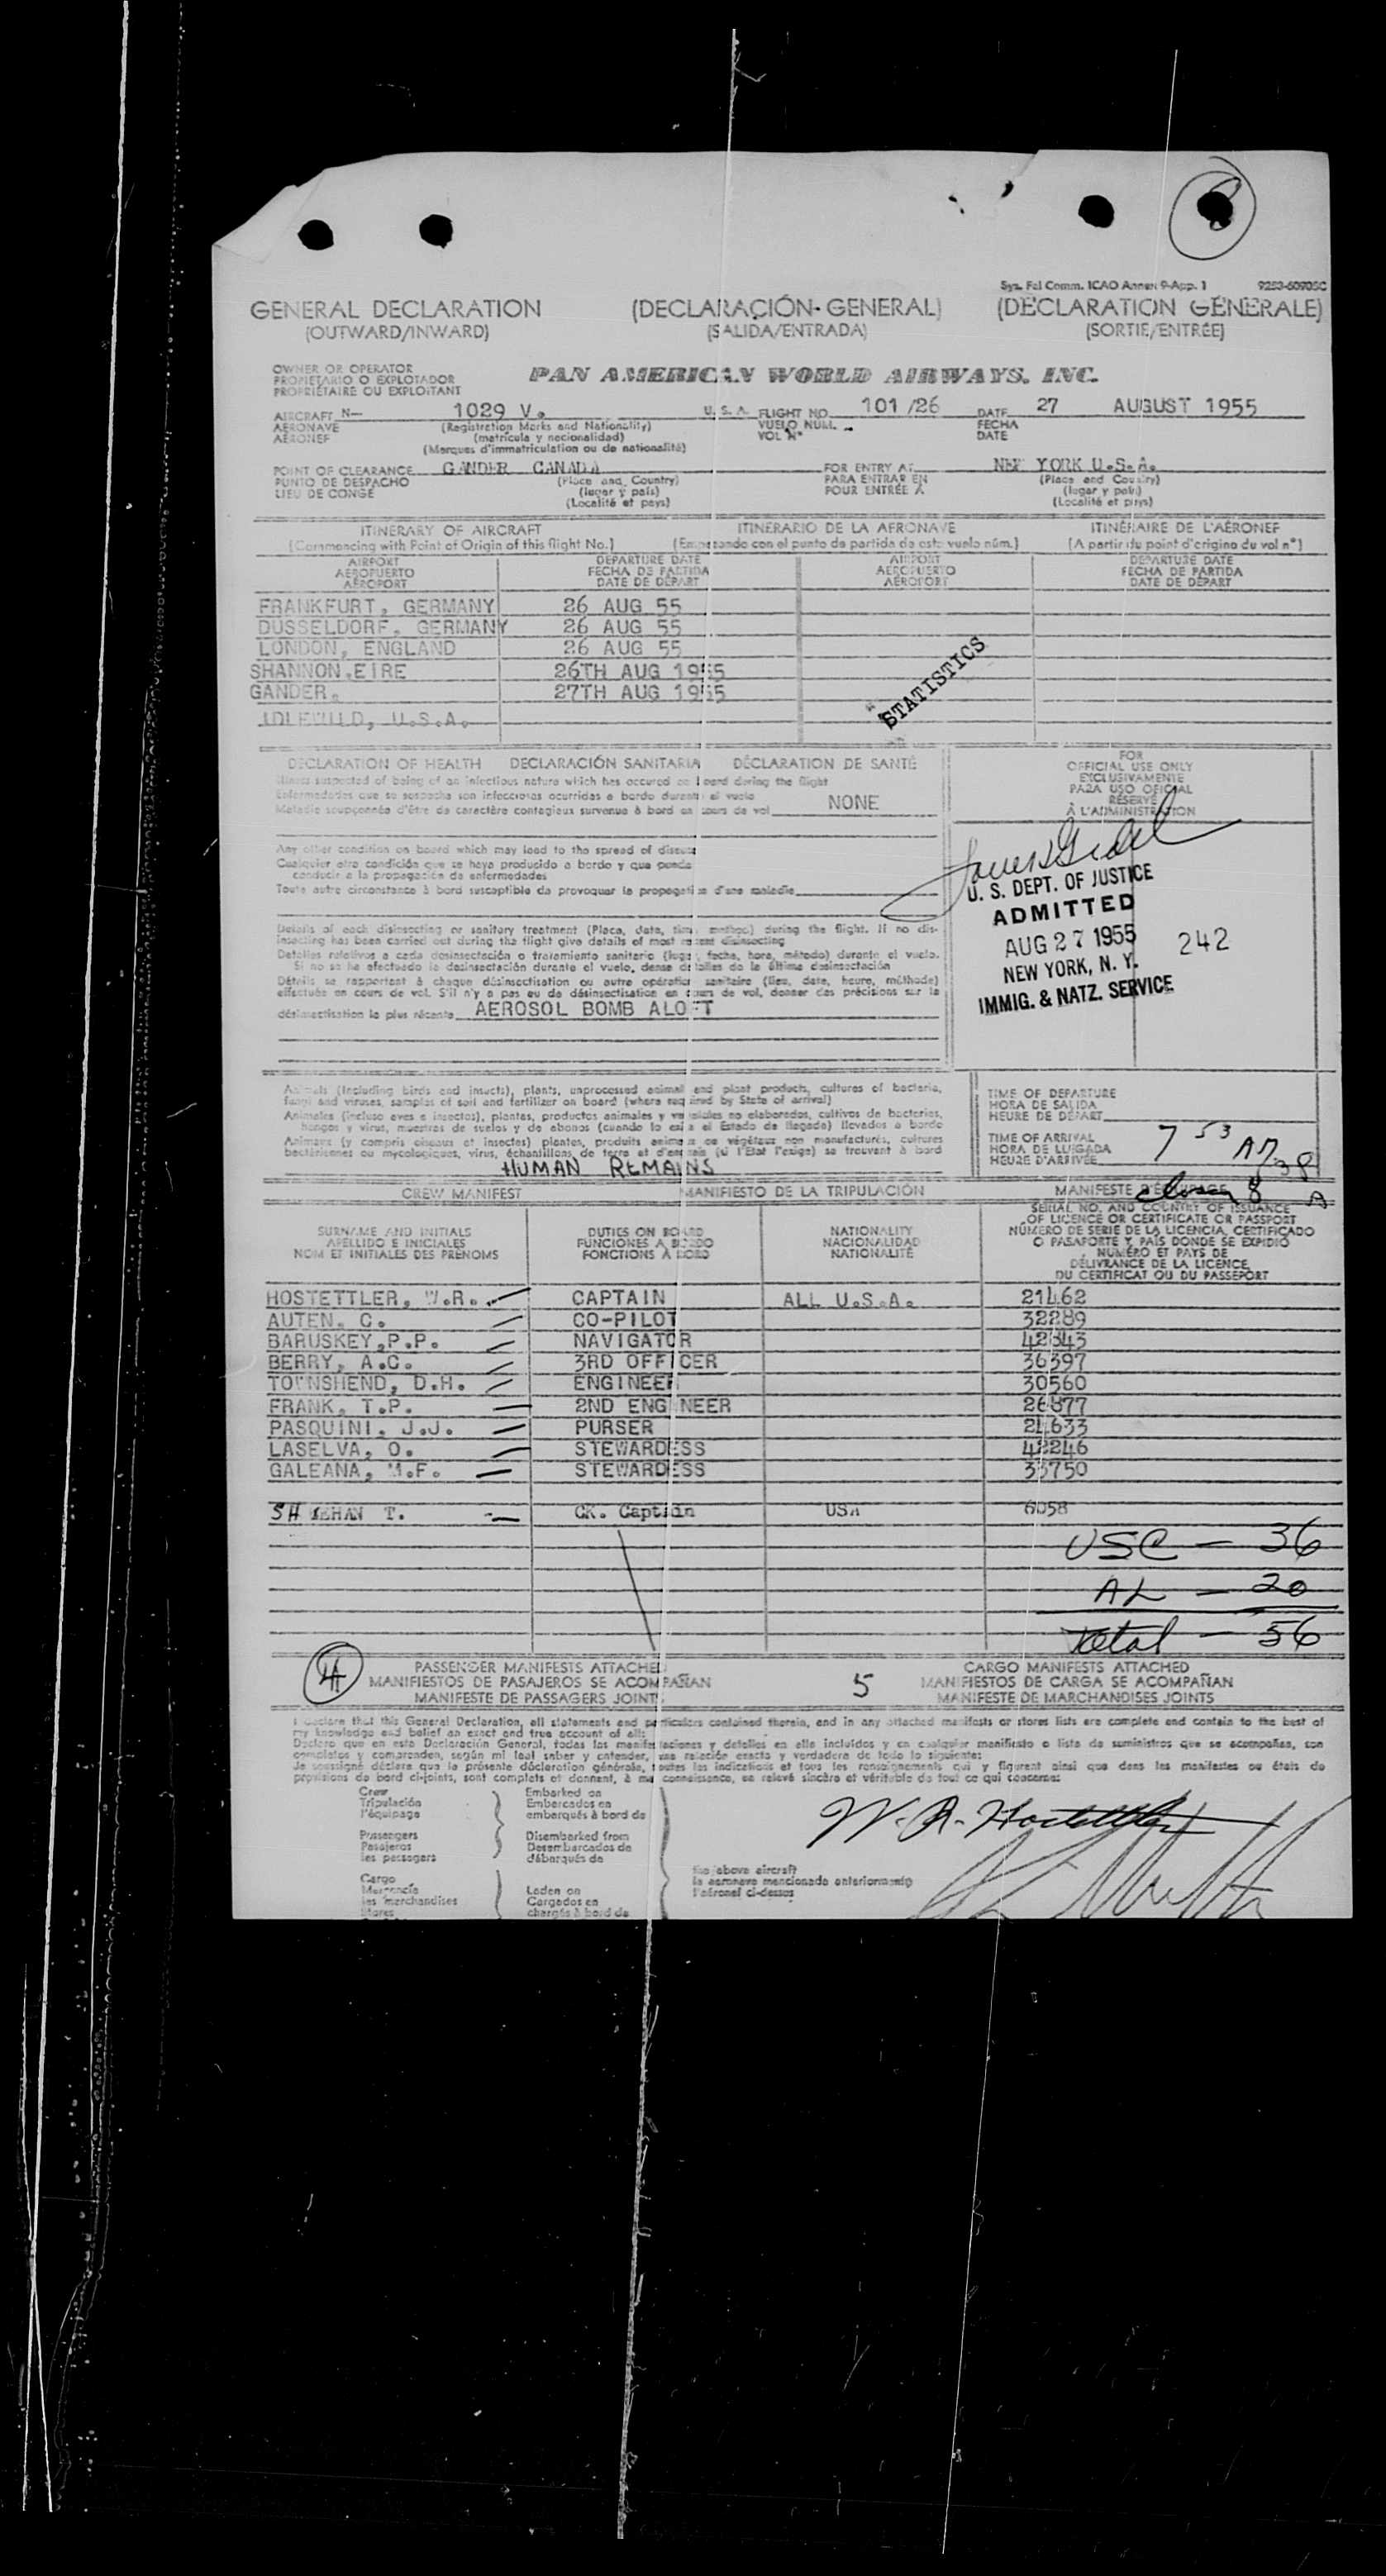 Sys. Fal Comm. ICAO Annex 9-App. 1 9253-60905C
GENERAL DECLARATION (DECLARACIÓN-GENERAL) (DÉCLARATION GÉNÉRALE)
(OUTWARD/INWARD) (SALIDA/ENTRADA) (SORTIE/ENTRÉE)
OWNER OR OPERATOR
PROPIETARIO O EXPLOTADOR PAN AMERICAN WORLD AIRWAYS, INC.
PROPRIÉTAIRE OU EXPLOITANT
AIRCRAFT N— 1029 V. U. S. A. FLIGHT NO. 101/26 DATE 27 AUGUST 1955
AERONAVE (Registration Marks and Nationality) VUELO NUM. FECHA
AÉRONEF (matrícula y nacionalidad) VOL Nº DATE
(Marques d'immatriculation ou de nationalité)
POINT OF CLEARANCE GANDER CANADA FOR ENTRY AT NEW YORK U.S.A.
PUNTO DE DESPACHO (Place and Country) PARA ENTRAR EN (Place and Country)
LIEU DE CONGÉ (lugar y país) POUR ENTRÉE À (lugar y país)
(Localité et pays) (Localité et pays)
ITINERARY OF AIRCRAFT ITINERARIO DE LA AERONAVE ITINÉRAIRE DE L'AÉRONEF
(Commencing with Point of Origin of this flight No.) (Empezando con el punto de partida de este vuelo núm.) (A partir du point d'origine du vol nº)
AIRPORT DEPARTURE DATE AIRPORT DEPARTURE DATE
AEROPUERTO FECHA DE PARTIDA AEROPUERTO FECHA DE PARTIDA
AÉROPORT DATE DE DÉPART AÉROPORT DATE DE DÉPART
FRANKFURT, GERMANY 26 AUG 55
DUSSELDORF, GERMANY 26 AUG 55
LONDON, ENGLAND 26 AUG 55
SHANNON.EIRE 26TH AUG 1955
GANDER. 27TH AUG 1955
IDLEWILD, U.S.A.
STATISTICS
DECLARATION OF HEALTH DECLARACIÓN SANITARIA DÉCLARATION DE SANTÉ
Illness suspected of being of an infectious nature which has occured on board during the flight
Enfermedades que se sospecha son infecciosas ocurridas a bordo durante el vuelo
Maladie soupçonnée d'être de caractère contagieux survenue à bord en cours de vol NONE
Any other condition on board which may lead to the spread of disease
Cualquier otra condición que se haya producido a bordo y que pueda
conducir a la propagación de enfermedades
Toute autre circonstance à bord susceptible de provoquer la propagation d'une maladie
Details of each disinsecting or sanitary treatment (Place, date, time, method) during the flight. If no dis-
insecting has been carried out during the flight give details of most recent disinsecting
Detalles relativos a cada desinsectación o tratamiento sanitario (lugar, fecha, hora, método) durante el vuelo.
Si no se ha efectuado la desinsectación durante el vuelo, dense detalles de la última desinsectación
Détails se rapportant à chaque désinsectisation ou autre opération sanitaire (lieu, date, heure, méthode)
effectuée en cours de vol. S'il n'y a pas eu de désinsectisation en cours de vol, donner des précisions sur la
désinsectisation la plus récente AEROSOL BOMB ALOFT
FOR
OFFICIAL USE ONLY
EXCLUSIVAMENTE
PARA USO OFICIAL
RÉSERVÉ
À L'ADMINISTRATION
U. S. DEPT. OF JUSTICE
ADMITTED
AUG 27 1955 242
NEW YORK, N. Y.
IMMIG. & NATZ. SERVICE
Animals (including birds and insects), plants, unprocessed animal and plant products, cultures of bacteria,
fungi and viruses, samples of soil and fertilizer on board (where required by State of arrival)
Animales (incluso aves e insectos), plantas, productos animales y vegetales no elaborados, cultivos de bacterias,
hongos y virus, muestras de suelos y de abonos (cuando lo exija el Estado de llegada) llevados a bordo
Animaux (y compris oiseaux et insectes) plantes, produits animaux ou végétaux non manufacturés, cultures
bactériennes ou mycologiques, virus, échantillons de terre et d'engrais (si l'État l'exige) se trouvant à bord
HUMAN REMAINS
TIME OF DEPARTURE
HORA DE SALIDA
HEURE DE DÉPART
TIME OF ARRIVAL
HORA DE LLEGADA 7 53 AM
HEURE D'ARRIVÉE
CREW MANIFEST MANIFIESTO DE LA TRIPULACIÓN MANIFESTE D'ÉQUIPAGE
SURNAME AND INITIALS DUTIES ON BOARD NATIONALITY SERIAL NO. AND COUNTRY OF ISSUANCE
APELLIDO E INICIALES FUNCIONES A BORDO NACIONALIDAD OF LICENCE OR CERTIFICATE OR PASSPORT
NOM ET INITIALES DES PRÉNOMS FONCTIONS À BORD NATIONALITÉ NÚMERO DE SERIE DE LA LICENCIA, CERTIFICADO
O PASAPORTE Y PAÍS DONDE SE EXPIDIÓ
NUMÉRO ET PAYS DE
DÉLIVRANCE DE LA LICENCE,
DU CERTIFICAT OU DU PASSEPORT
HOSTETTLER, W.R. CAPTAIN ALL U.S.A. 21462
AUTEN. C. CO-PILOT 32289
BARUSKEY,P.P. NAVIGATOR 42843
BERRY, A.C. 3RD OFFICER 36397
TOWNSHEND, D.H. ENGINEER 30560
FRANK, T.P. 2ND ENGINEER 26877
PASQUINI, J.J. PURSER 21633
LASELVA, O. STEWARDESS 42246
GALEANA, M.F. STEWARDESS 33750
SHEEHAN T. CK. Captain USA 6058
USC — 36
AL — 20
Total — 56
4 PASSENGER MANIFESTS ATTACHED 5 CARGO MANIFESTS ATTACHED
MANIFIESTOS DE PASAJEROS SE ACOMPAÑAN MANIFIESTOS DE CARGA SE ACOMPAÑAN
MANIFESTE DE PASSAGERS JOINTS MANIFESTE DE MARCHANDISES JOINTS
I declare that this General Declaration, all statements and particulars contained therein, and in any attached manifests or stores lists are complete and contain to the best of
my knowledge and belief an exact and true account of all:
Declaro que en esta Declaración General, todas las manifestaciones y detalles en ella incluidos y en cualquier manifiesto o lista de suministros que se acompañan, son
completos y comprenden, según mi leal saber y entender, una relación exacta y verdadera de todo lo siguiente:
Je soussigné déclare que la présente déclaration générale, toutes les indications et tous les renseignements qui y figurent ainsi que dans les manifestes ou états de
provisions de bord ci-joints, sont complets et donnent, à ma connaissance, un relevé sincère et véritable de tout ce qui concerne:
Crew Embarked on
Tripulación Embarcados en
l'équipage embarqués à bord de
W. R. Hostettler
Passengers Disembarked from
Pasajeros Desembarcados de
les passagers débarqués de
the above aircraft
la aeronave mencionada anteriormente
l'aéronef ci-dessus
Cargo
Mercancía Laden on
les marchandises Cargados en
Stores chargés à bord de